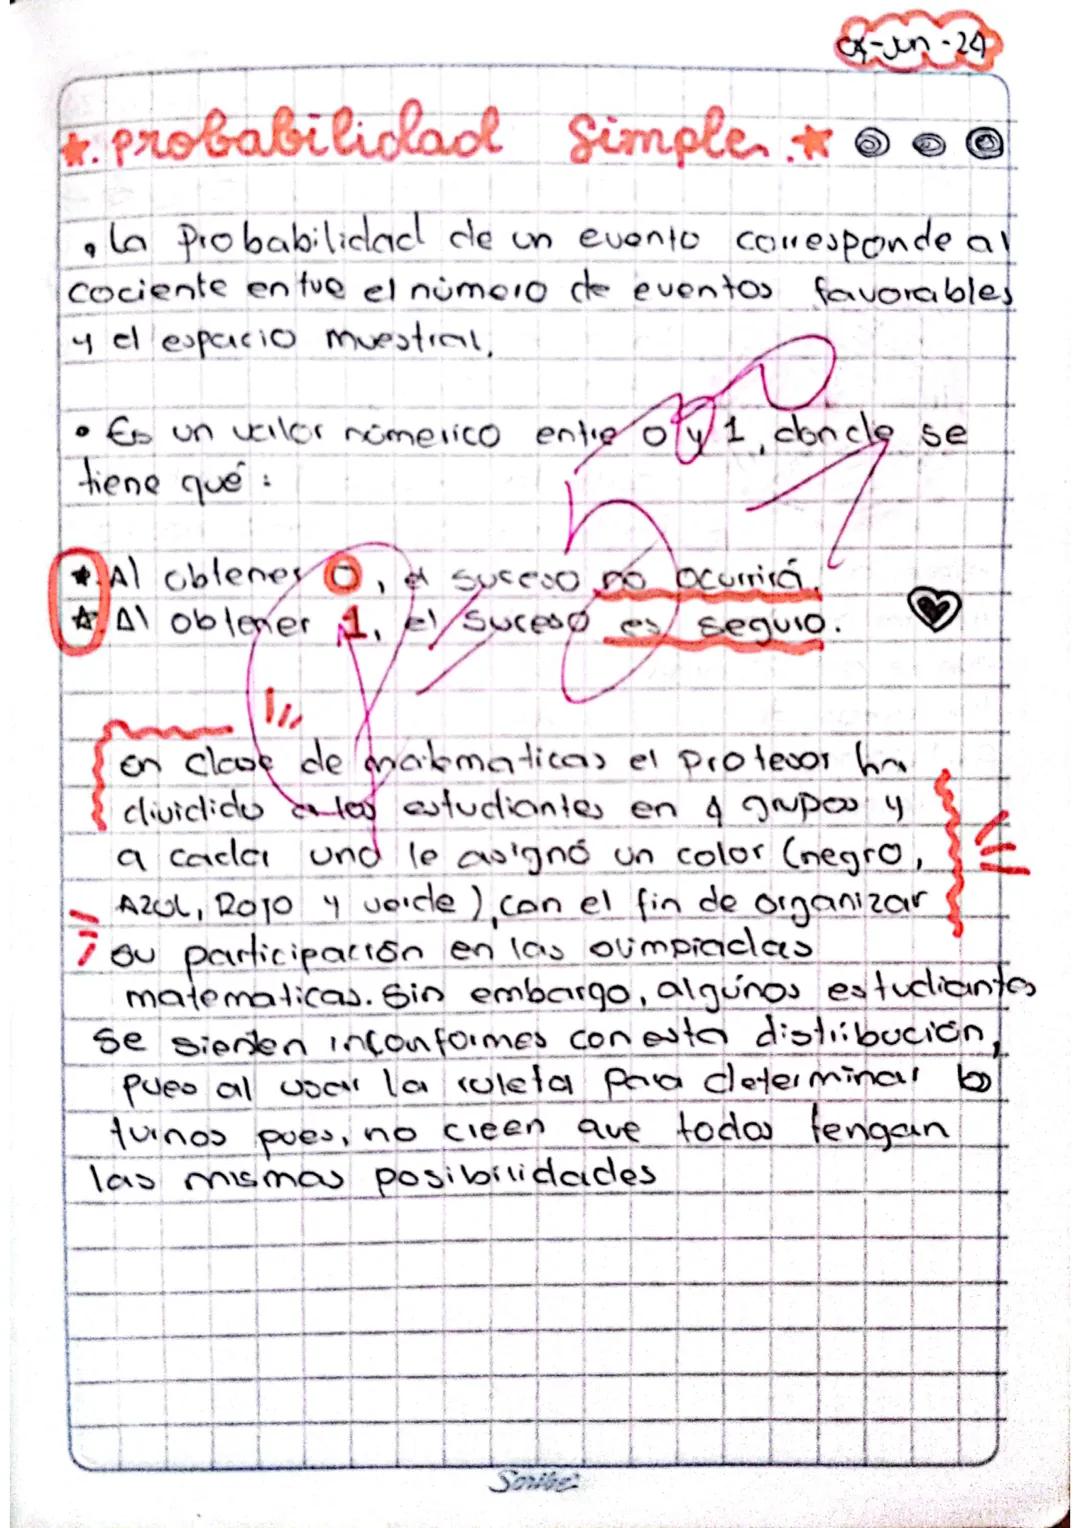 -Jun-24
probabilidad Simple.
La Probabilidad de un evento corresponde al
cociente entre el número de eventos favorables
y el espacio muestral.
• Es un valor númerico entre 0 y 1, donde se
tiene qué:
Al obtener 0, el suceso no ocurrirá.
Al obtener 1, el suceso es seguro.
en clase de matematicas el profesor ha
dividido a los estudiantes en 4 grupos y
a cada uno le asignó un color (negro,
Azul, Rojo y verde), con el fin de organizar
su participación en las olimpiadas
matematicas. Sin embargo, algúnos estudiantes
se sienten inconformes con esta distribución,
pues al usar la ruleta para determinar los
turnos pues, no creen que todos tengan
las mismas posibilidades
Scribe